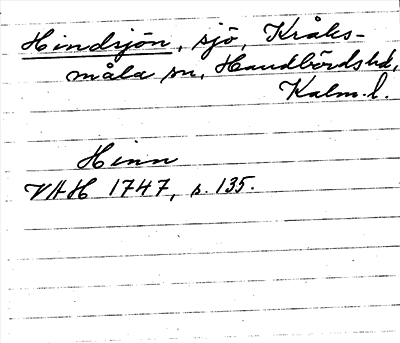 Hindsjön, sjö, Kråks-
måla sn, Handbörds hd,
Kalm. l.
Hinn
VAH 1747, s. 135.